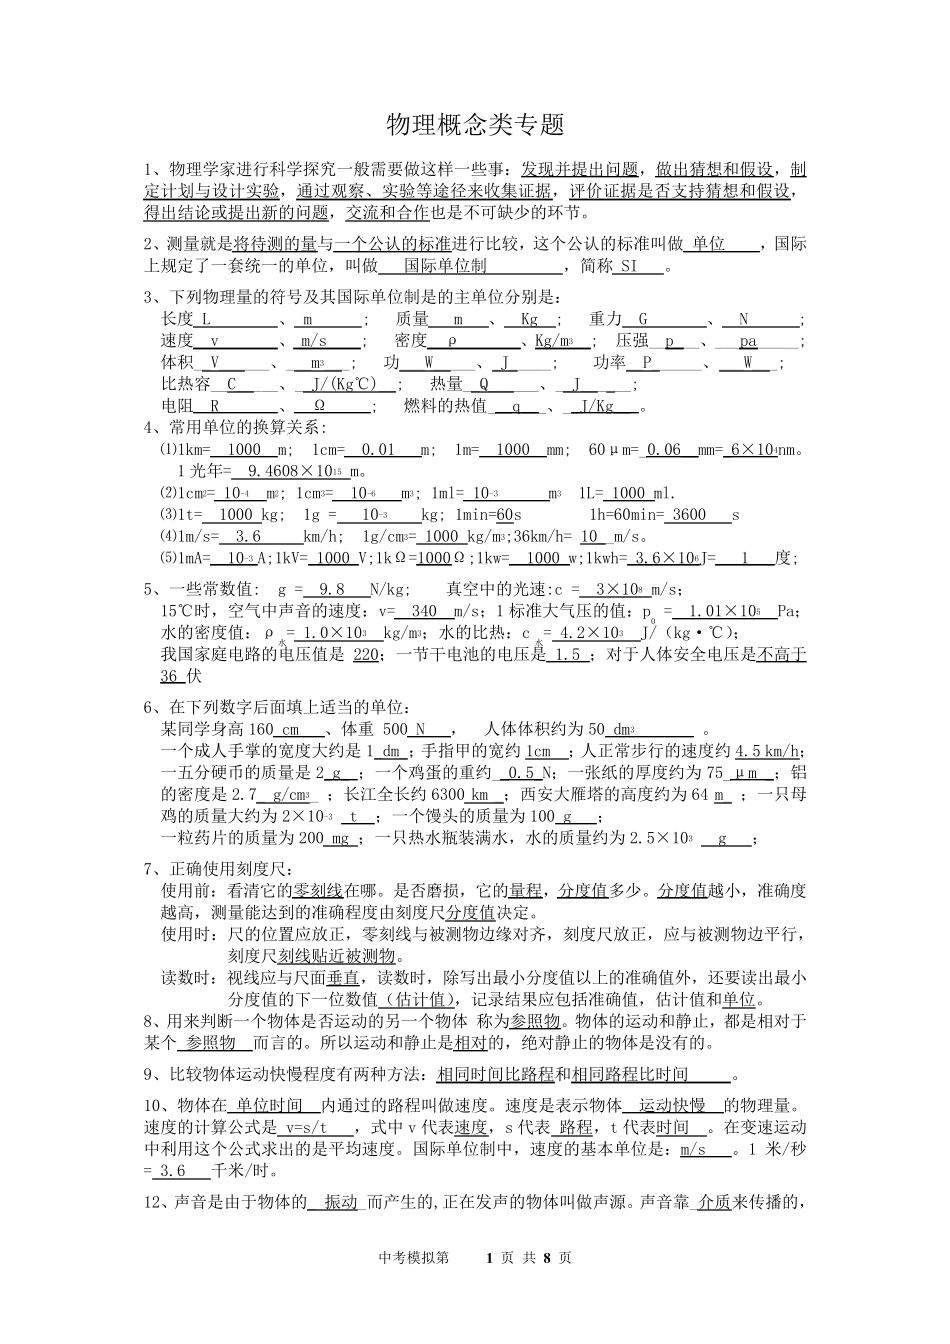 物理概念类专题
1、物理学家进行科学探究一般需要做这样一些事：发现并提出问题，做出猜想和假设，制
定计划与设计实验，通过观察、实验等途径来收集证据，评价证据是否支持猜想和假设，
得出结论或提出新的问题，交流和合作也是不可缺少的环节。
2、测量就是将待测的量与一个公认的标准进行比较，这个公认的标准叫做 单位 ，国际
上规定了一套统一的单位，叫做 国际单位制 ，简称 SI 。
3、下列物理量的符号及其国际单位制是的主单位分别是：
长度 L 、 m ； 质量 m 、 Kg ； 重力 G 、 N ；
速度 v 、 m/s ； 密度 ρ 、Kg/m3 ； 压强 p 、 pa ；
体积 V 、 m3 ； 功 W 、 J ； 功率 P 、 W ；
比热容 C 、 J/(Kg℃) ； 热量 Q 、 J ；
电阻 R 、 Ω ； 燃料的热值 q 、 J/Kg 。
4、常用单位的换算关系：
⑴1km= 1000 m; 1cm= 0.01 m; 1m= 1000 mm; 60μm= 0.06 mm= 6×104nm。
1 光年= 9.4608×1015 m。
⑵1cm2= 10-4 m2; 1cm3= 10-6 m3; 1ml= 10-3 m3 1L= 1000 ml.
⑶1t= 1000 kg; 1g = 10-3 kg; 1min=60s 1h=60min= 3600 s
⑷1m/s= 3.6 km/h; 1g/cm3= 1000 kg/m3;36km/h= 10 m/s。
⑸1mA= 10-3 A;1kV= 1000 V;1kΩ=1000Ω;1kw= 1000 w;1kwh= 3.6×106J= 1 度;
5、一些常数值: g = 9.8 N/kg; 真空中的光速:c = 3×108 m/s；
15℃时，空气中声音的速度：v= 340 m/s；1 标准大气压的值：p0 = 1.01×105 Pa；
水的密度值：ρ水= 1.0×103 kg/m3；水的比热：c水= 4.2×103 J/（kg·℃）；
我国家庭电路的电压值是 220；一节干电池的电压是 1.5 ；对于人体安全电压是不高于
36 伏
6、在下列数字后面填上适当的单位：
某同学身高 160 cm 、体重 500 N ， 人体体积约为 50 dm3 。
一个成人手掌的宽度大约是 1 dm ；手指甲的宽约 1cm ；人正常步行的速度约 4.5 km/h；
一五分硬币的质量是 2 g ；一个鸡蛋的重约 0.5 N；一张纸的厚度约为 75 μm ；铝
的密度是 2.7 g/cm3 ；长江全长约 6300 km ；西安大雁塔的高度约为 64 m ；一只母
鸡的质量大约为 2×10-3 t ；一个馒头的质量为 100 g ；
一粒药片的质量为 200 mg ；一只热水瓶装满水，水的质量约为 2.5×103 g ；
7、正确使用刻度尺：
使用前：看清它的零刻线在哪。是否磨损，它的量程，分度值多少。分度值越小，准确度
越高，测量能达到的准确程度由刻度尺分度值决定。
使用时：尺的位置应放正，零刻线与被测物边缘对齐，刻度尺放正，应与被测物边平行，
刻度尺刻线贴近被测物。
读数时：视线应与尺面垂直，读数时，除写出最小分度值以上的准确值外，还要读出最小
分度值的下一位数值（估计值），记录结果应包括准确值，估计值和单位。
8、用来判断一个物体是否运动的另一个物体 称为参照物。物体的运动和静止，都是相对于
某个 参照物 而言的。所以运动和静止是相对的，绝对静止的物体是没有的。
9、比较物体运动快慢程度有两种方法：相同时间比路程和相同路程比时间 。
10、物体在 单位时间 内通过的路程叫做速度。速度是表示物体 运动快慢 的物理量。
速度的计算公式是 v=s/t ，式中 v 代表速度，s 代表 路程，t 代表时间 。在变速运动
中利用这个公式求出的是平均速度。国际单位制中，速度的基本单位是：m/s 。1 米/秒
= 3.6 千米/时。
12、声音是由于物体的 振动 而产生的,正在发声的物体叫做声源。声音靠 介质来传播的，
中考模拟第 1 页 共 8 页